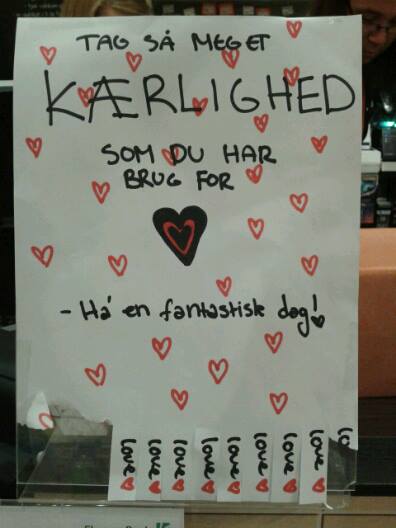 TAG SÅ MEGET
KÆRLIGHED
SOM DU HAR
BRUG FOR
- Ha' en fantastisk dag!
love
love
love
love
love
love
love
love
lo